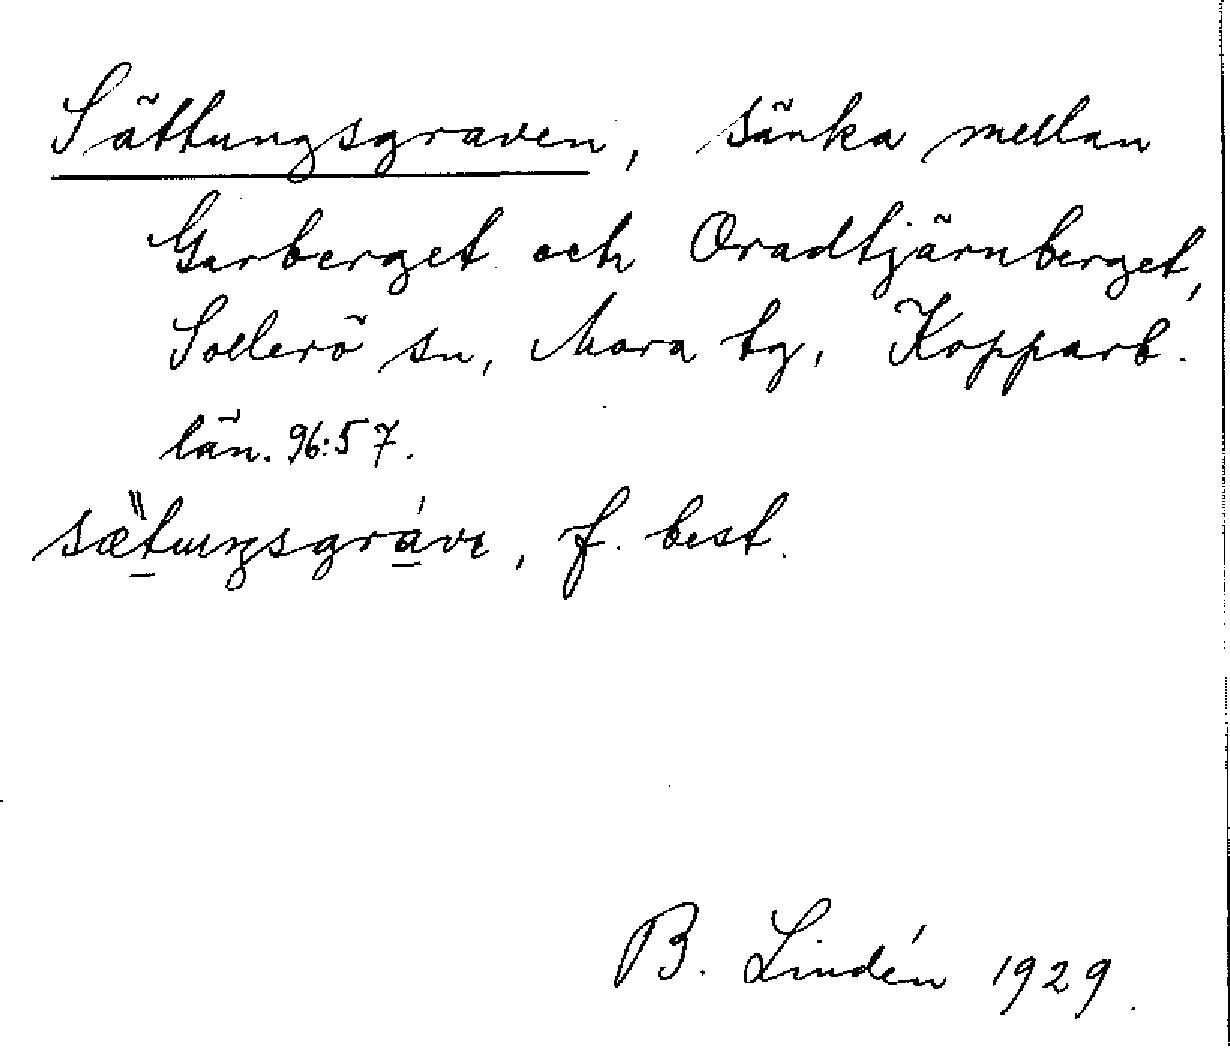 Sättungsgraven, sänka mellan
Garberget och Oradtjärnberget,
Sollerö sn, Mora tg, Kopparb.
län. 96:57.
sætuŋsgrávɩ, f. best.
B. Lindén 1929.